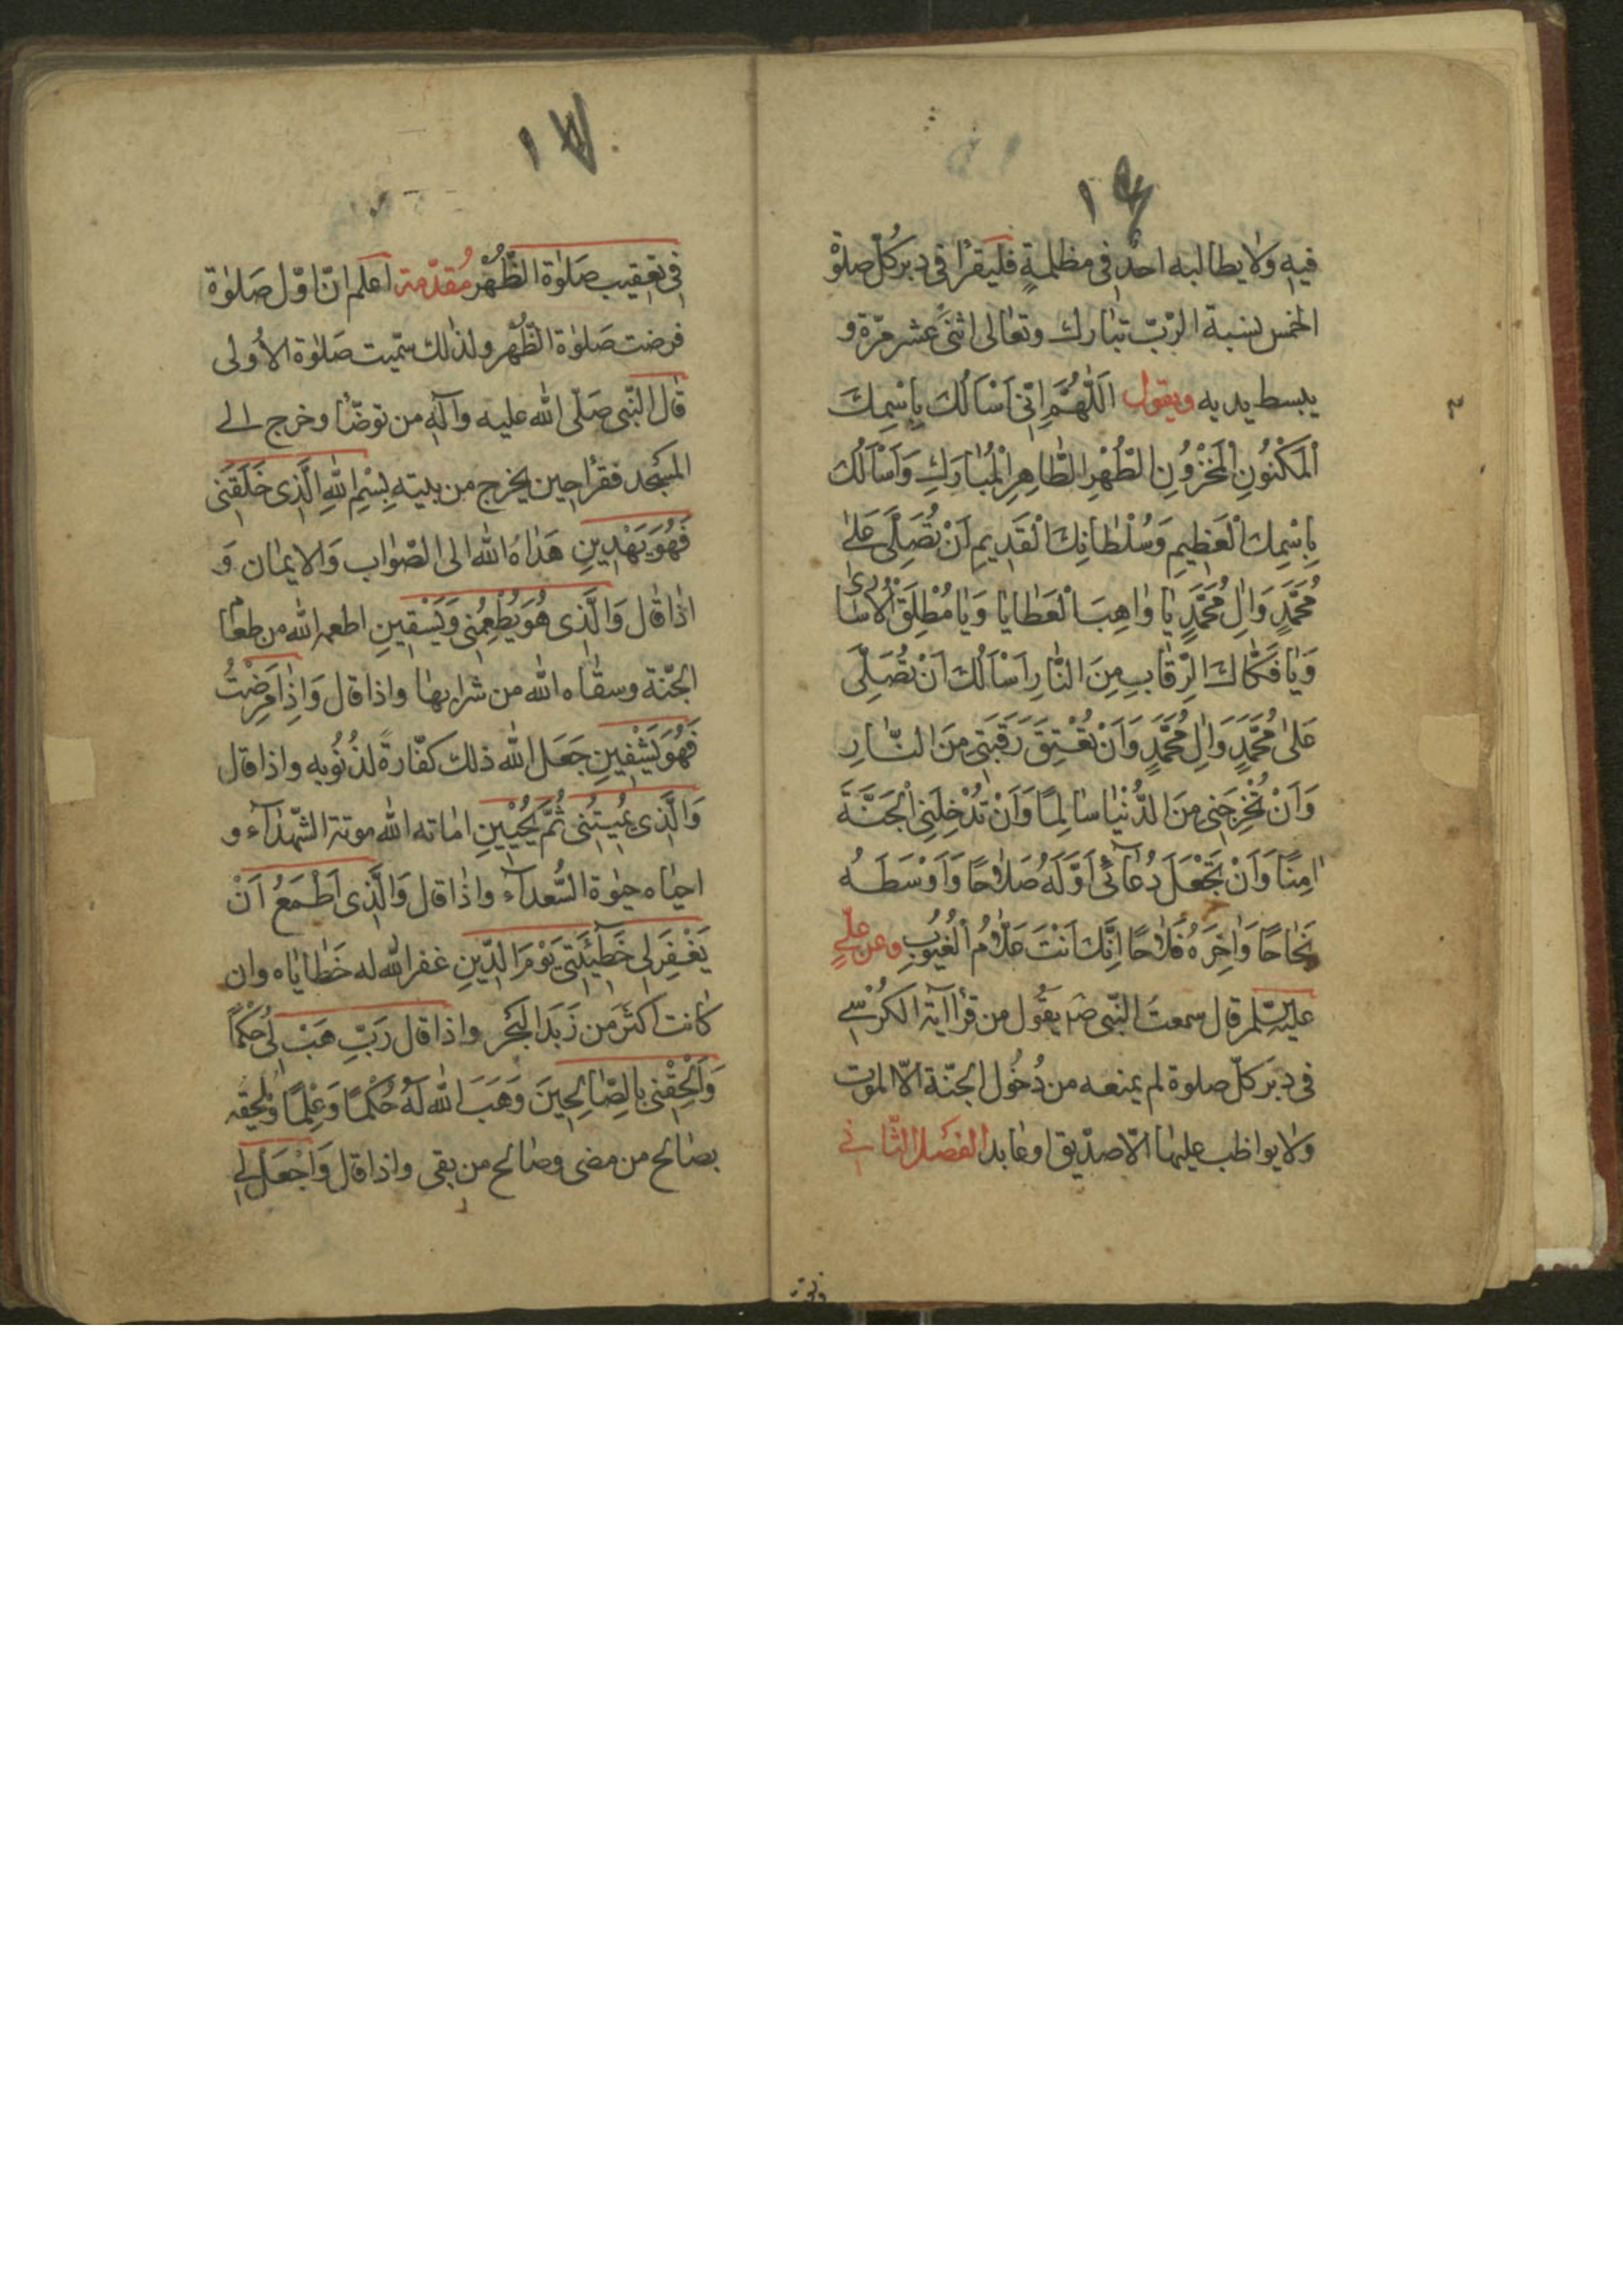 ١٦
فيه ولا يطالبه احد في مظلمةٍ فليقرأ في دبر كُلّ صلوة
الخمس بنسبة الرّبّ تبارك وتعالى اثنى عشر مرّة و
يبسط يديه ويقول اَللّٰهُمَّ اِنّى اَسْاَلُكَ بِاسْمِكَ
الْمَكْنُونِ الْمَخْزُونِ الطُّهْرِ الطّاهِرِ الْمُبارَكِ وَاَسْاَلُكَ
بِاسْمِكَ الْعَظِيمِ وَسُلْطانِكَ الْقَدِيمِ اَنْ تُصَلِّىَ عَلىٰ
مُحَمَّدٍ وَالِ مُحَمَّدٍ يا واهِبَ الْعَطايا وَيا مُطْلِقَ الْاُسارىٰ
وَيا فَكّاكَ الرِّقابِ مِنَ النّارِ اَسْاَلُكَ اَنْ تُصَلِّىَ
عَلىٰ مُحَمَّدٍ وَالِ مُحَمَّدٍ وَاَنْ تُعْتِقَ رَقَبَتى مِنَ النّارِ
وَاَنْ تُخْرِجَنى مِنَ الدُّنْيا سالِمًا وَاَنْ تُدْخِلَنِى الْجَنَّةَ
امِنًا وَاَنْ تَجْعَلَ دُعآئى اَوَّلَهُ صَلاحًا وَاَوْسَطَهُ
نَجاحًا وَاخِرَهُ فَلاحًا اِنَّكَ اَنْتَ عَلاّمُ الْغُيُوبِ وعن علىٍّ
عليه السّلم قال سمعت النّبى ص يقول من قرأ آية الكرسى
فى دبر كلّ صلوة لم يمنعه من دُخُول الجنّة الاّ الموت
ولا يواظب عليها الاّ صدّيق او عابد الفصل الثّانى
١٧
فى تعقيب صَلوٰة الظّهر مُقدّمة اعلم انّ اوّل صَلوٰة
فرضت صَلوٰة الظّهر ولذلك سمّيت صَلوٰة الاُولى
قال النّبى صَلّى الله عليه وآله من توضّأ وخرج الى
المسجد فقرأ حين يخرج من بيته بِسْمِ اللهِ الَّذى خَلَقَنى
فَهُوَ يَهْدِينِ هَداهُ الله الى الصّواب وَالايمان وَ
اذا قال وَالَّذى هُوَ يُطْعِمُنى وَيَسْقِينِ اطعمه الله من طعام
الجنّة وسقاه الله من شرابها واذا قال وَاِذا مَرِضْتُ
فَهُوَ يَشْفِينِ جَعَل الله ذلك كفّارةً لذُنُوبه واذا قال
وَالَّذى يُمِيتُنى ثُمَّ يُحْيِينِ اماته الله موتة الشّهدآء و
احياه حيوة السُّعدآء واذا قال وَالَّذى اَطْمَعُ اَنْ
يَغْفِرَلى خَطيٓئَتى يَوْمَ الدّينِ غفر الله له خَطاياه وان
كانت اكثَر من زَبَد البَحْر واذا قال رَبِّ هَبْ لى حُكْمًا
وَاَلْحِقْنى بِالصّالِحينَ وَهَبَ الله لَهُ حُكْمًا وَعِلْمًا ويلحقه
بصالح من مضى وصالح من بقى واذا قال وَاجْعَلْ لى